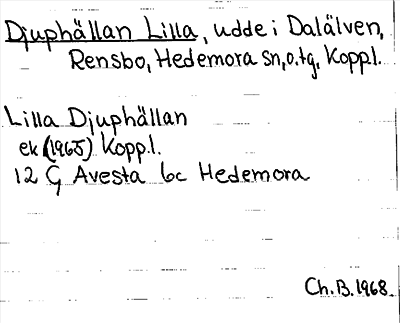 Djuphällan Lilla, udde i Dalälven,
Rensbo, Hedemora sn, o. tg, Koppl.
Lilla Djuphällan
ek (1965) Kopp.l.
12 G Avesta 6c Hedemora
Ch.B.1968.